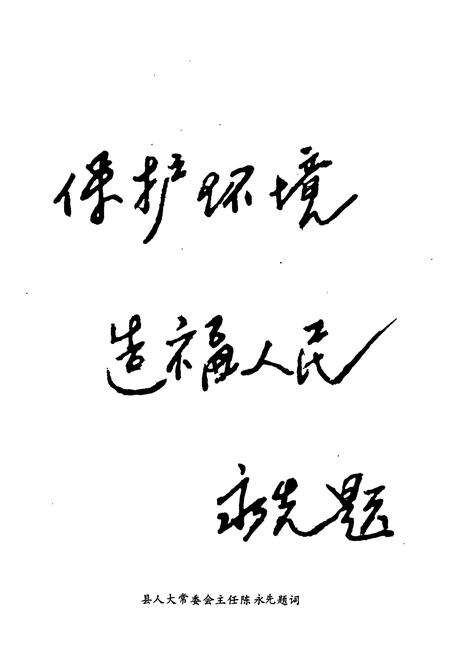 保护环境
造福人民
永先题
县人大常委会主任陈永先题词